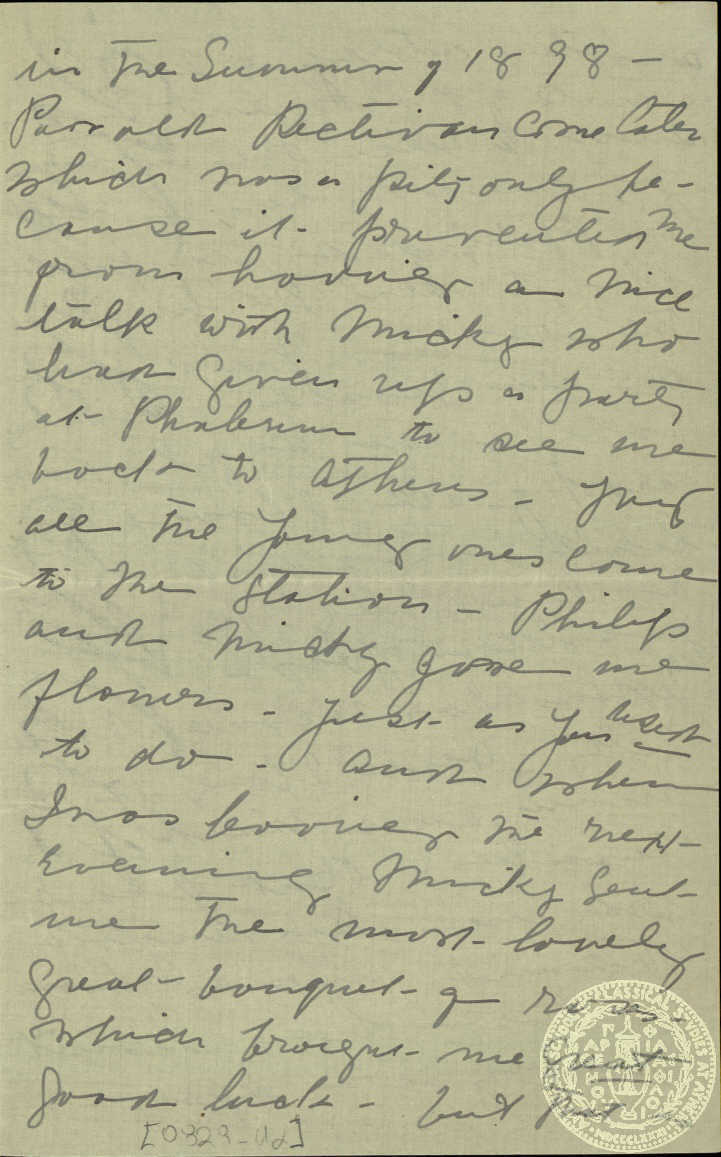 in the Summer of 1898 —
Poor old Rectivan come later
which was a pity only be-
cause it prevented me
from having a nice
talk with Micky who
had given up a party
at Phalerum to see me
back to Athens - 
all the young ones come
to the Station - Philip
and Micky gave me
flowers - just as you used
to do - and when
I was leaving the next
evening Micky sent
me the most lovely
great bouquet of roses -
which brought me
good luck - but
[0323-02]
CLASSICAL STUDIES AT
MDCCCLXXXI